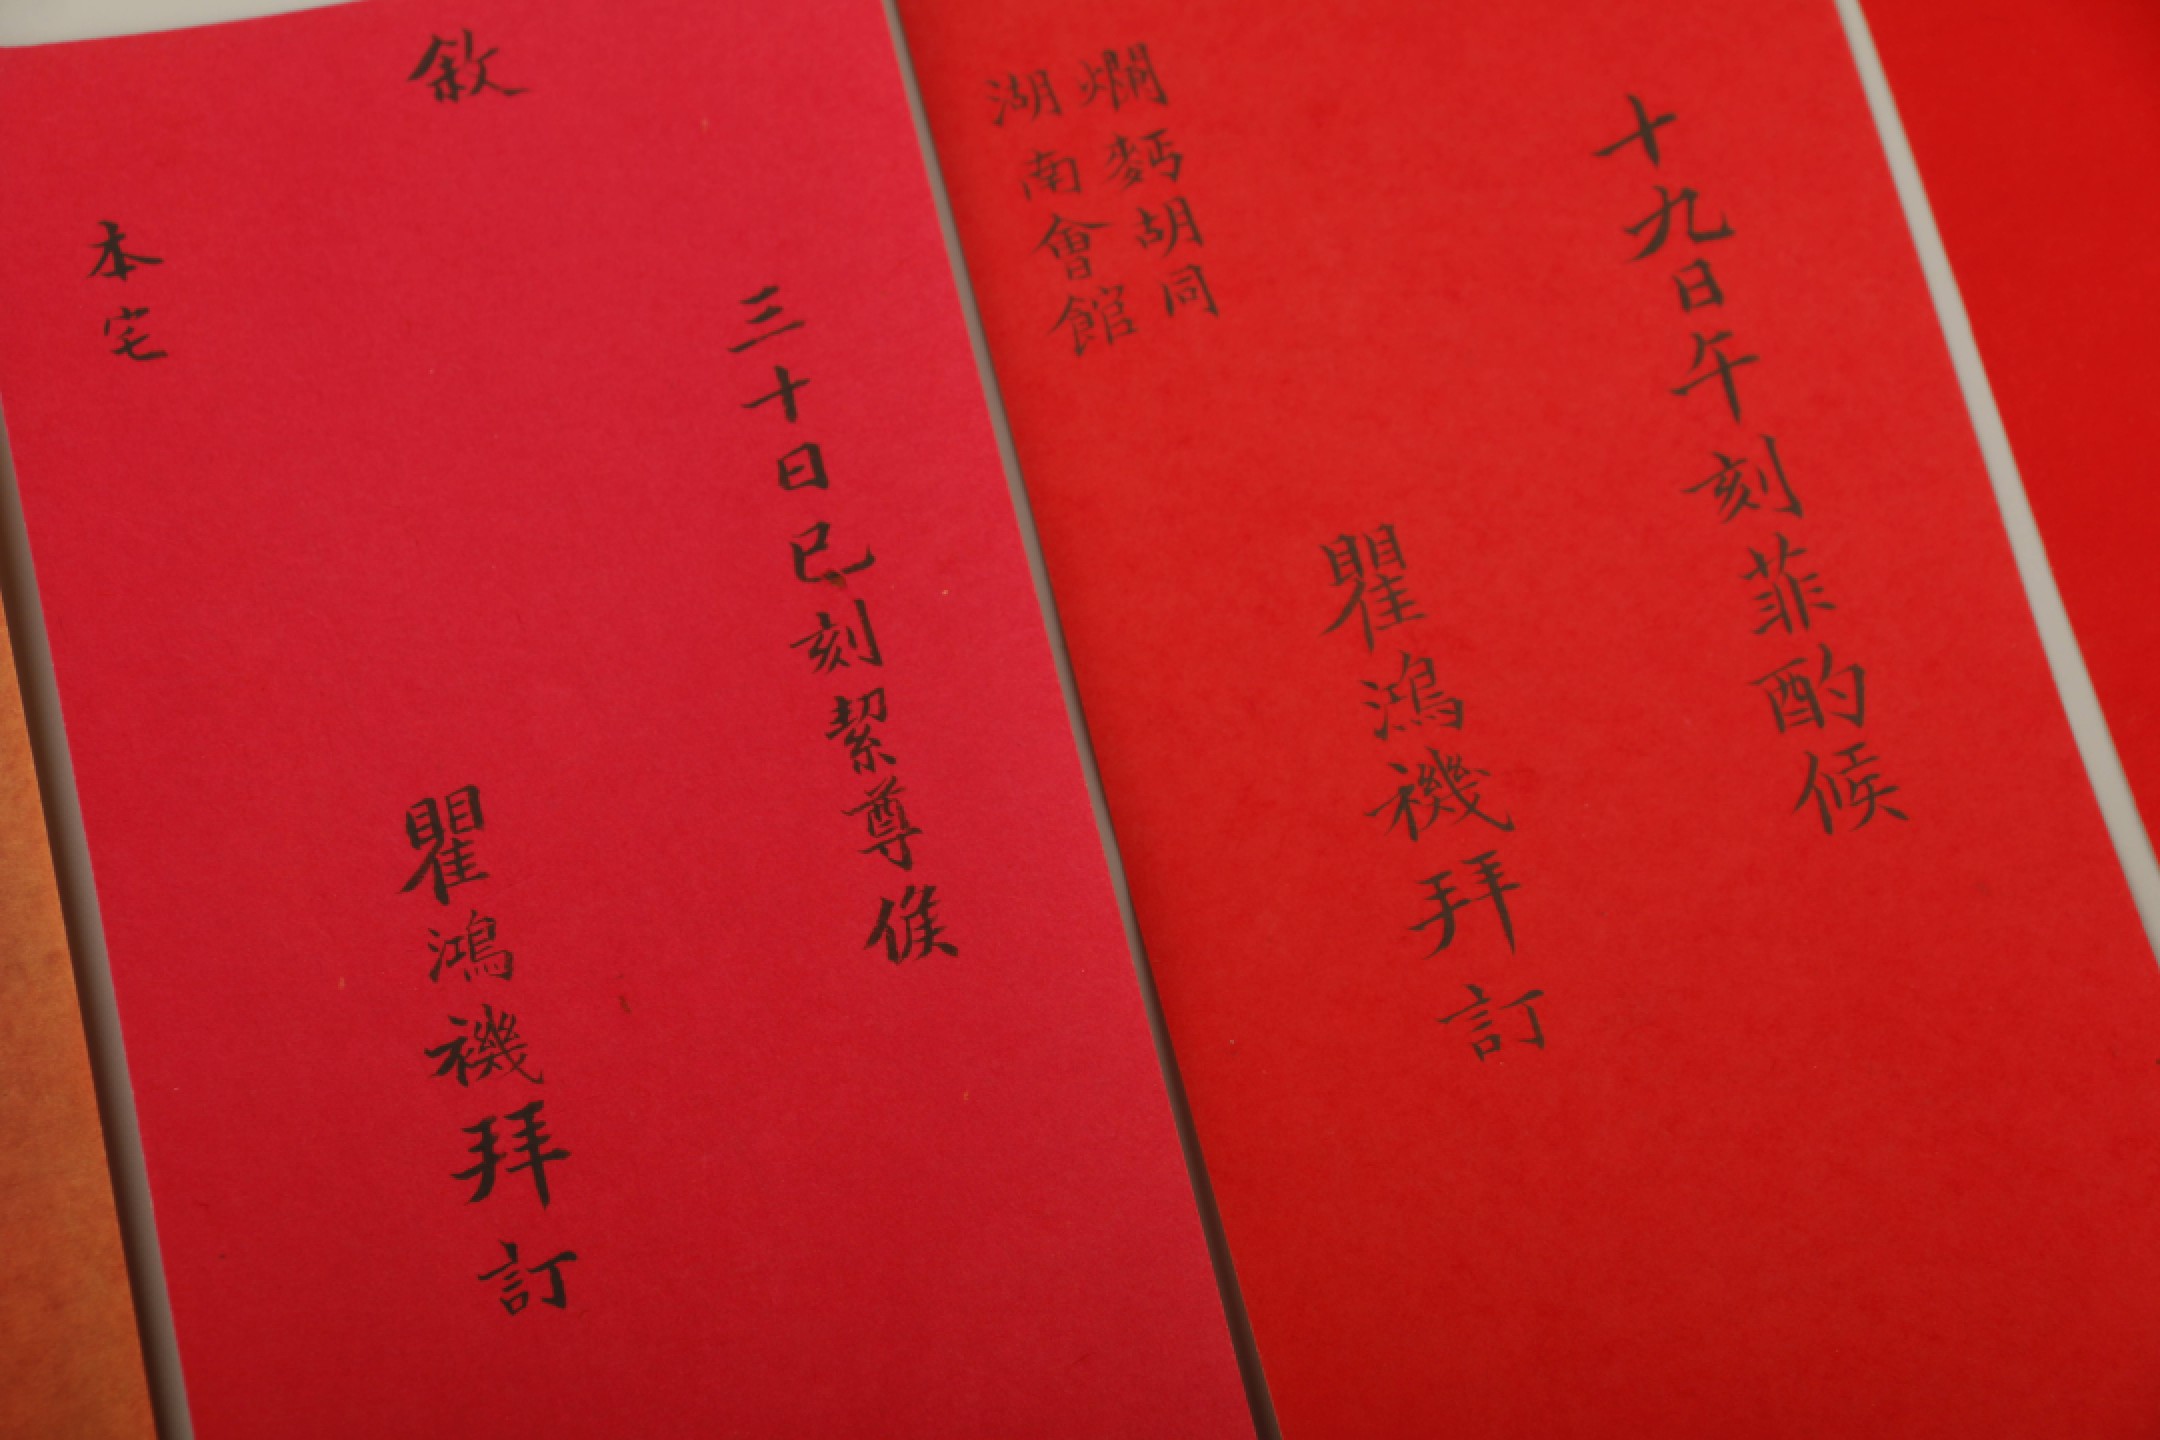 十九日午刻菲酌候
瞿鴻禨拜訂
爛麪胡同
湖南會館
敘
三十日巳刻絜尊候
瞿鴻禨拜訂
本宅